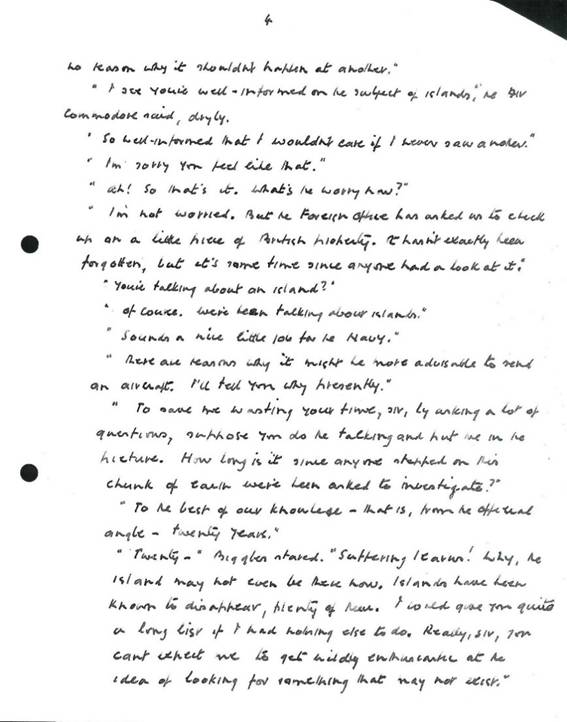 4
no reason why it shouldn't happen at another."
" I see you're well-informed on the subject of islands," the Air
Commodore said, dryly.
" So well-informed that I wouldn't care if I never saw another."
" I'm sorry you feel like that."
" Ah! So that's it. What's the worry now?"
" I'm not worried. But the Foreign Office has asked us to check
up on a little piece of British property. It hasn't exactly been
forgotten, but it's some time since anyone had a look at it."
" You're talking about an island?"
" Of course. We've been talking about islands."
" Sounds a nice little job for the Navy."
" There are reasons why it might be more advisable to send
an aircraft. I'll tell you why presently."
" To save me wasting your time, sir, by asking a lot of
questions, suppose you do the talking and put me in the
picture. How long is it since anyone stepped on this
chunk of earth we've been asked to investigate?"
" To the best of our knowledge - that is, from the official
angle - twenty years."
" Twenty - " Biggles stared. "Suffering Icarus! Why, the
island may not even be there now. Islands have been
known to disappear, plenty of them. I could give you quite
a long list if I had nothing else to do. Really, sir, you
can't expect me to get wildly enthusiastic at the
idea of looking for something that may not exist."